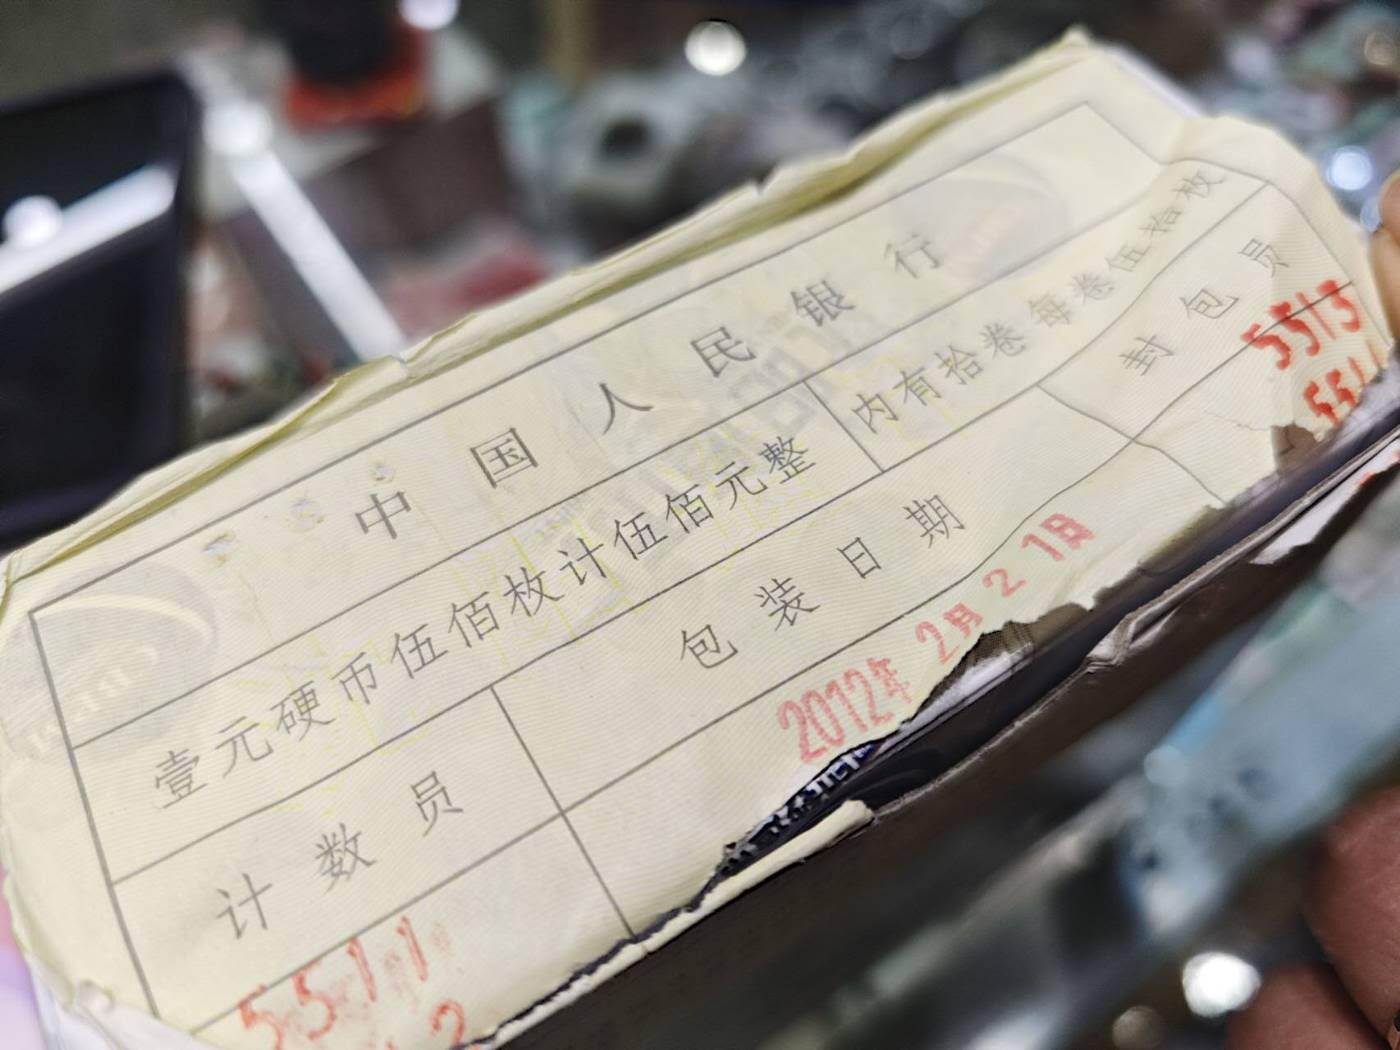 中国人民银行
壹元硬币伍佰枚计伍佰元整 内有拾卷每卷伍拾枚
计数员 包装日期 封包员
5511 2012年2月21日 5513
2 551